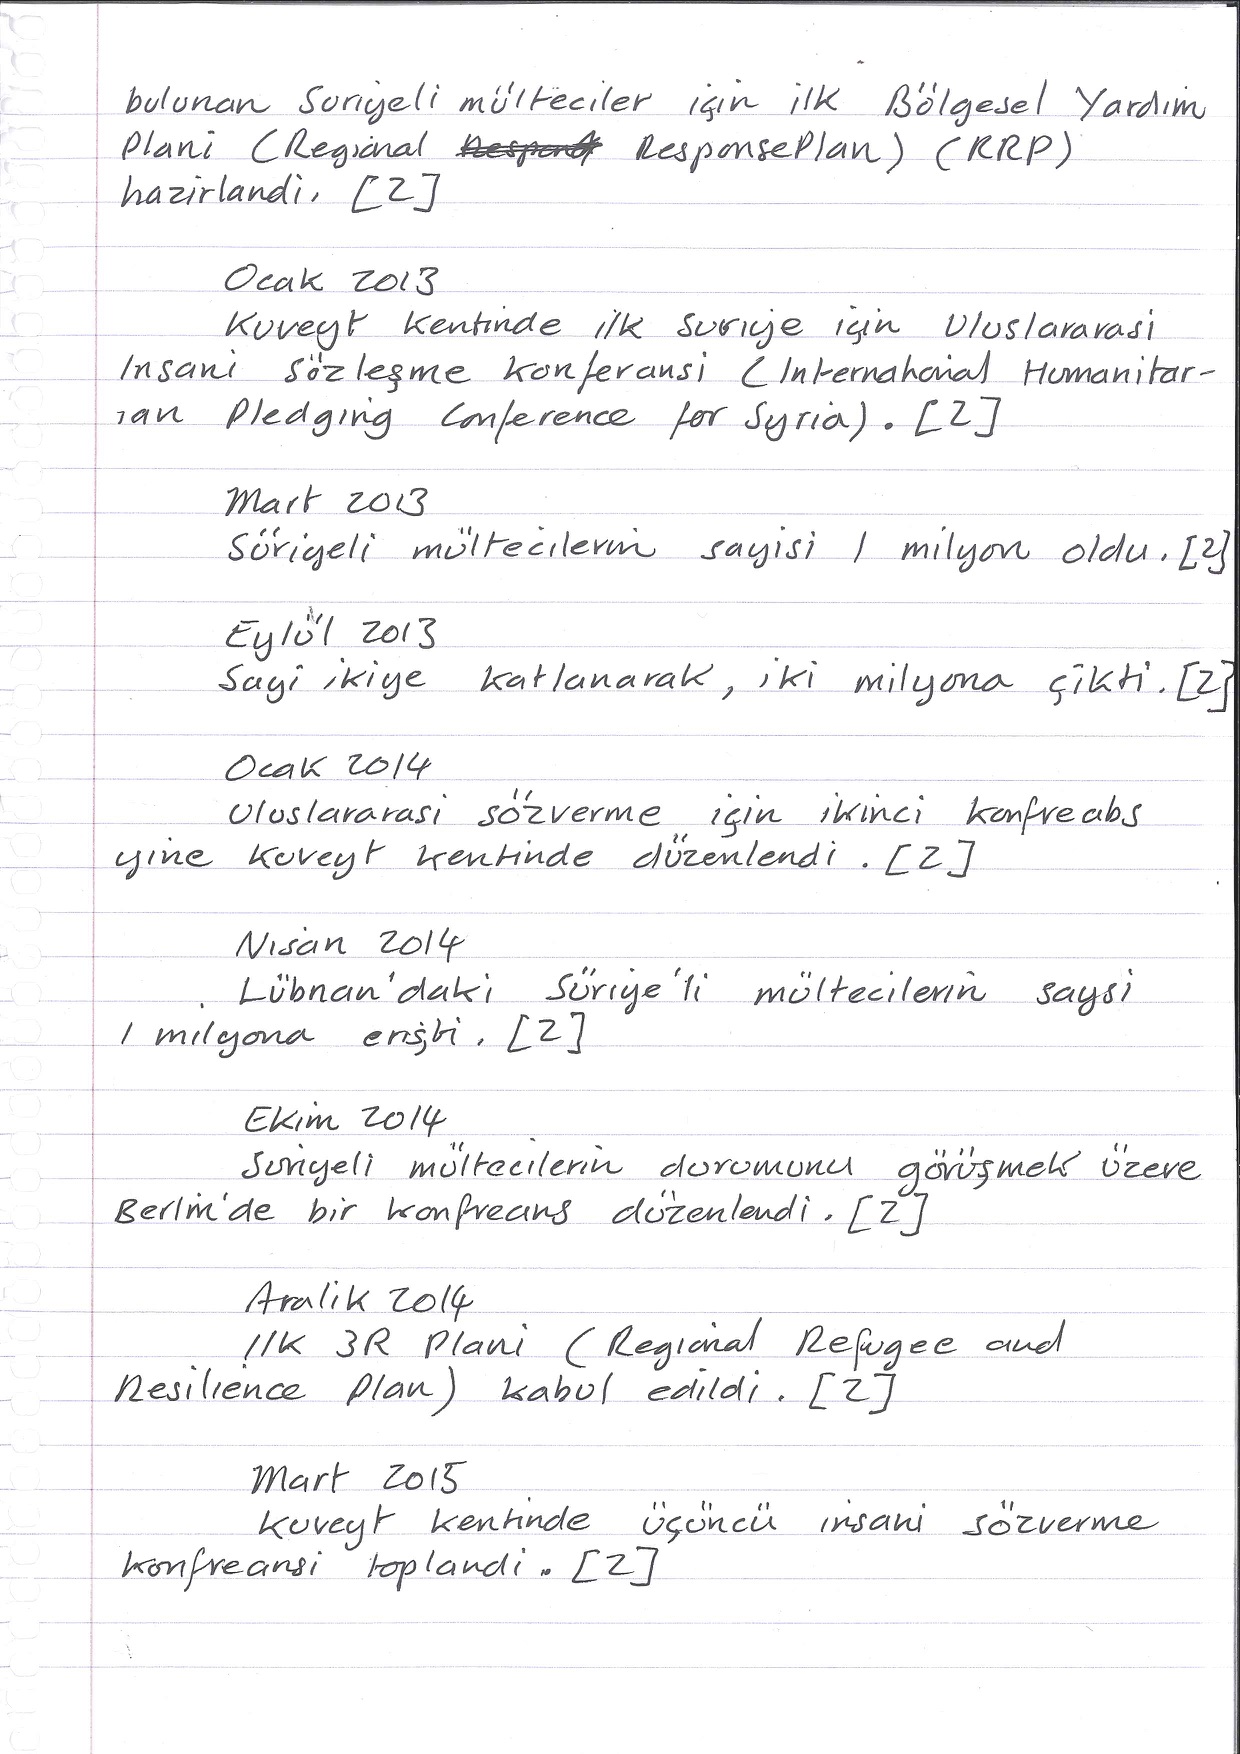 bulunan Suriyeli mülteciler için ilk Bölgesel Yardim
Plani (Regional ResponsePlan) (RRP)
hazirlandi. [2]
Ocak 2013
Kuveyt kentinde ilk suriye için Uluslararasi
Insani sözleşme konferansi (International Humanitar-
ian Pledging Conference for Syria). [2]
Mart 2013
Süriyeli mültecilerin sayisi 1 milyon oldu. [2]
Eylül 2013
Sayi ikiye katlanarak, iki milyona çikti. [2]
Ocak 2014
Uluslararasi sözverme için ikinci konfreabs
yine Kuveyt kentinde düzenlendi. [2]
Nisan 2014
Lübnan'daki Süriye'li mültecilerin saysi
1 milyona erişti. [2]
Ekim 2014
Suriyeli mültecilerin durumunu görüşmek üzere
Berlin'de bir konfreans düzenlendi. [2]
Aralik 2014
Ilk 3R Plani (Regional Refugee and
Resilience Plan) kabul edildi. [2]
Mart 2015
Kuveyt kentinde üçüncü insani sözverme
konfreansi toplandi. [2]